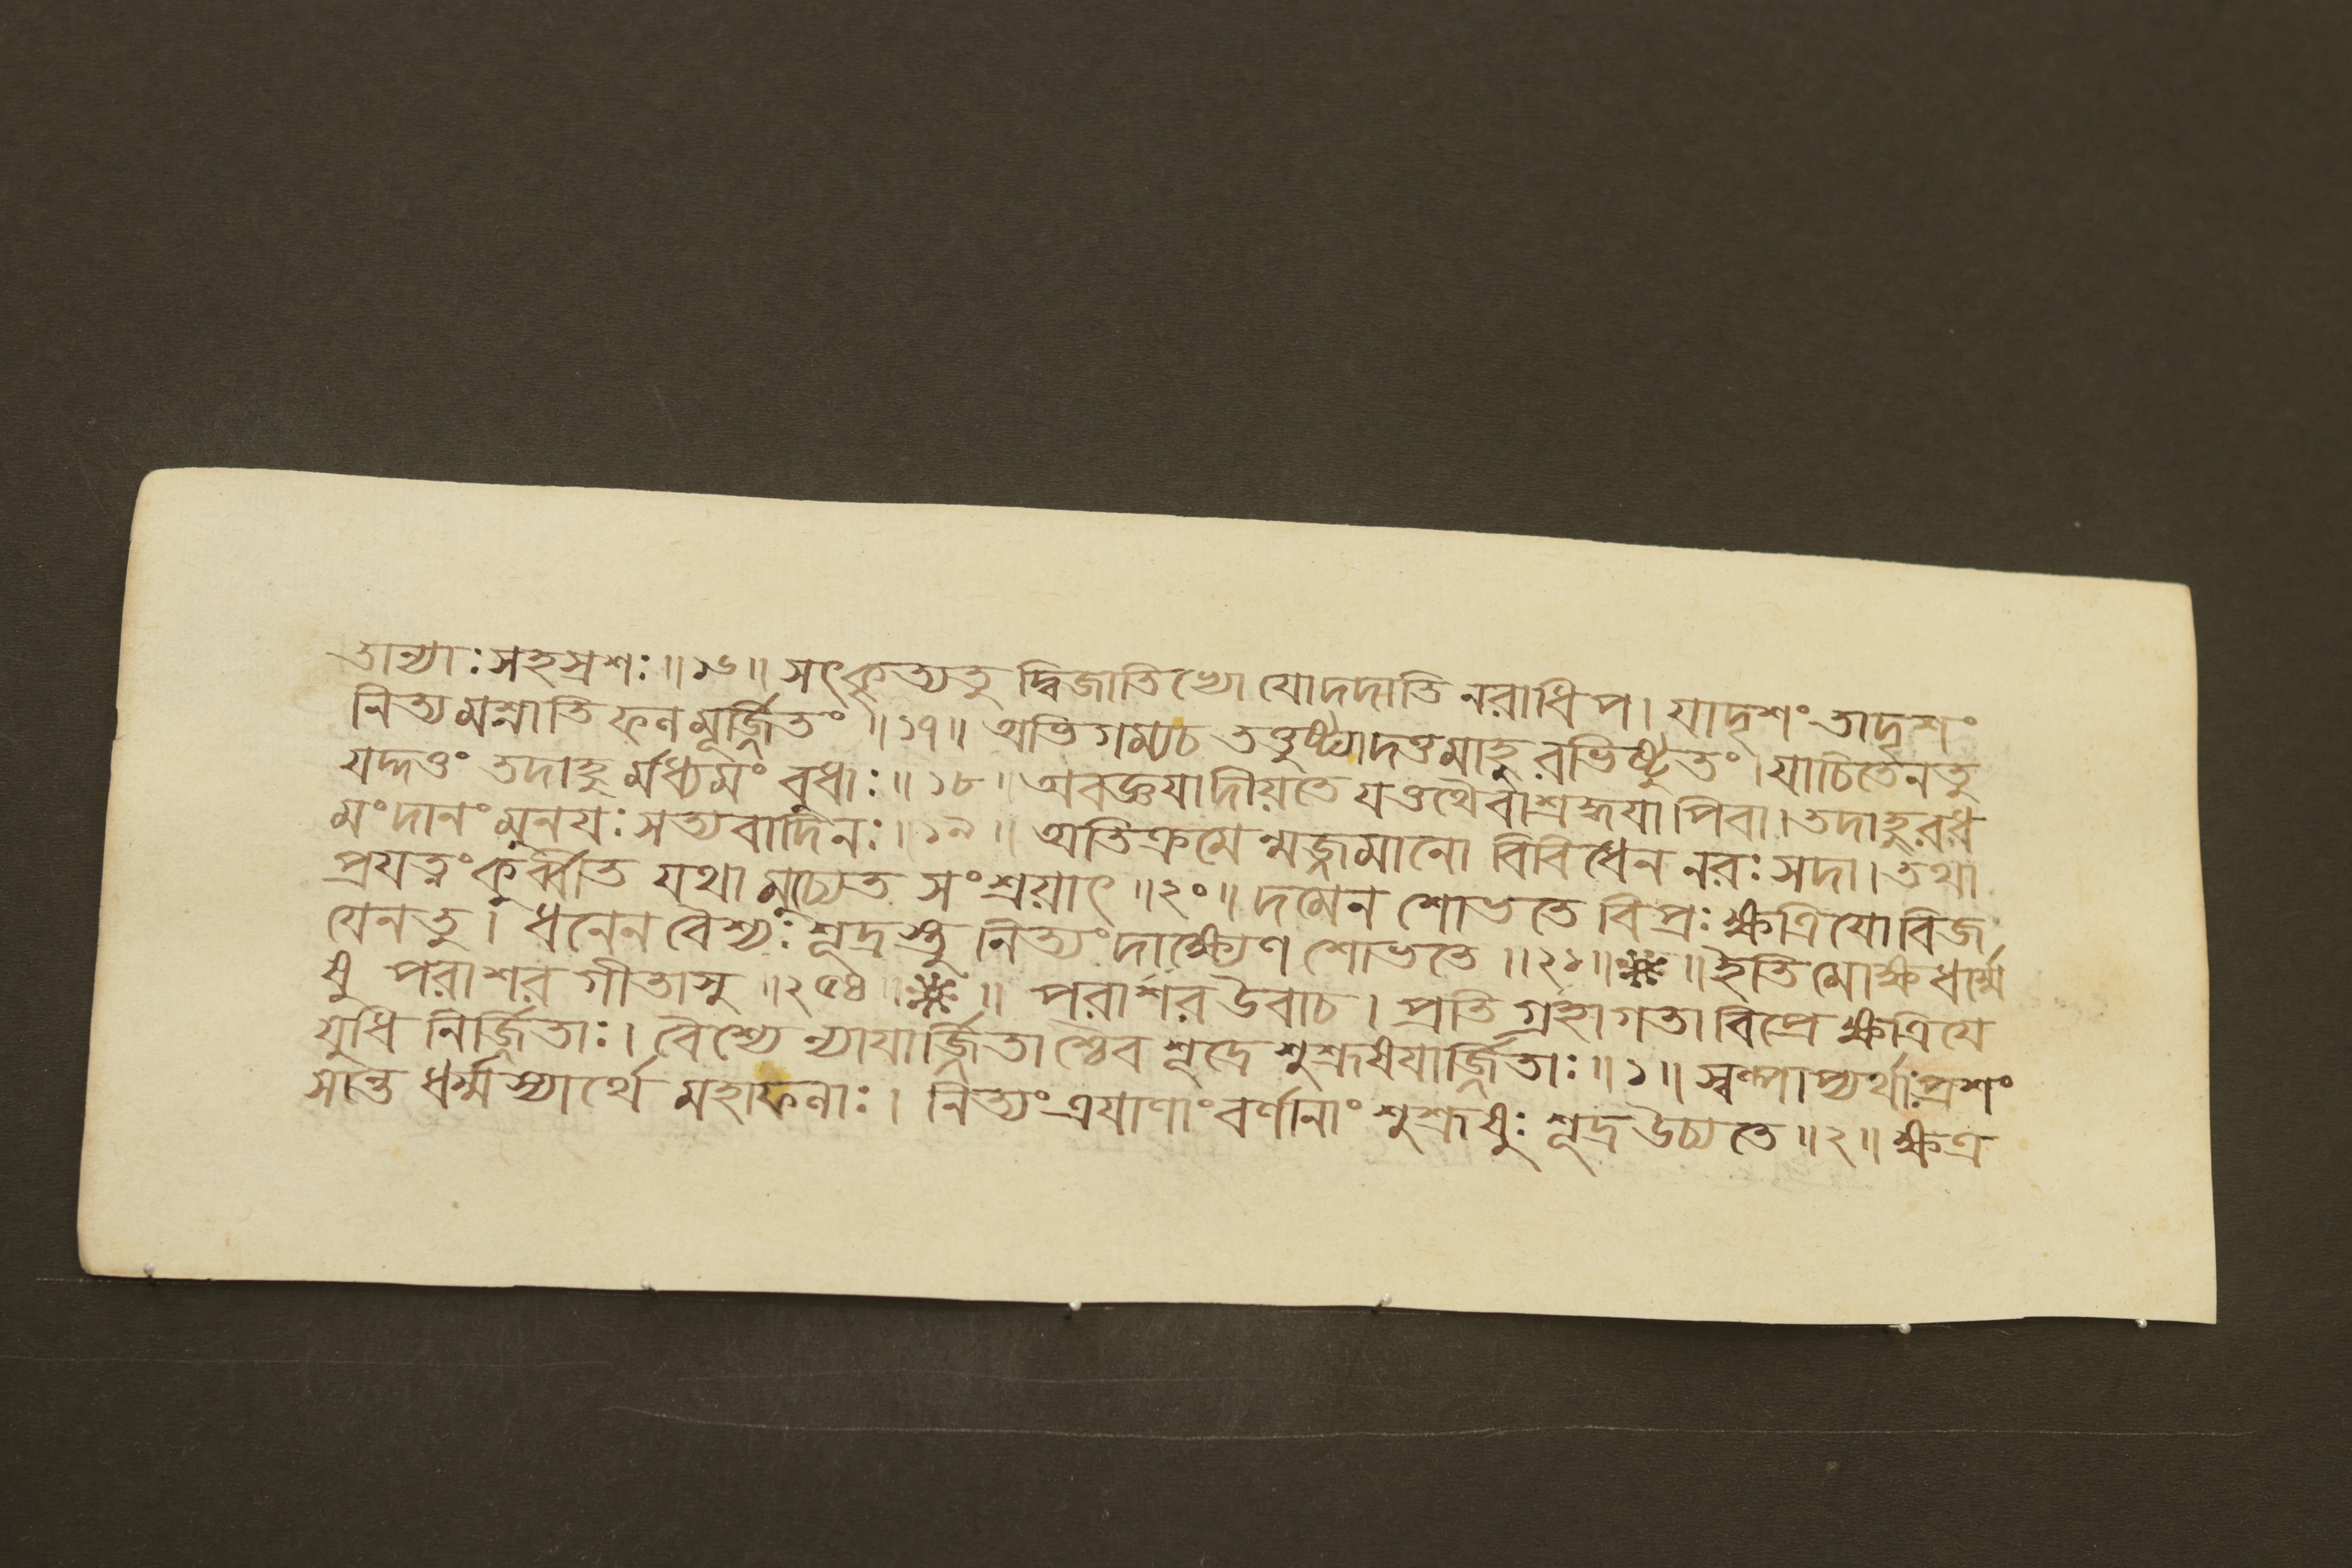 তান্যাঃ সহস্রশঃ ॥ ১৬ ॥ সৎকৃত্যতু দ্বিজাতিভ্যো যোদদাতি নরাধিপ । যাদৃশং তাদৃশং
নিত্যমশ্নাতি ফলমূর্জ্জিতং ॥ ১৭ ॥ অভিগম্যচ তত্তুষ্ট্যাদত্তমাহুরভিষ্টুতং । যাচিতেনতু
যদ্দত্তং তদাহুর্মধ্যমং বুধাঃ ॥ ১৮ ॥ অবজ্ঞযাদীয়তে যত্তথৈবাশ্রদ্ধযাপিবা । তদাহুরধ
মংদানং মুনযঃ সত্যবাদিনঃ ॥ ১৯ ॥ অতিক্রমেন্মজ্জমানো বিবিধেন নরঃ সদা । তথা
প্রযত্নং কুর্ব্বীত যথা মুচ্যেত সংশ্রয়াৎ ॥ ২০ ॥ দমেন শোভতে বিপ্রঃ ক্ষত্রিযোবিজ
যেনতু । ধনেন বৈশ্যঃ শূদ্রস্তু নিত্যং দাক্ষ্যেণ শোভতে ॥ ২১ ॥ ※ ॥ ইতি মোক্ষধর্ম্মে
ষু পরাশরগীতাসু ॥ ২৫৪ ॥ ※ ॥ পরাশর উবাচ । প্রতিগ্রহাগতা বিপ্রে ক্ষত্রিযে
যুধি নির্জ্জিতাঃ । বৈশ্যে ন্যাযার্জ্জিতাশ্চৈব শূদ্রে শুশ্রূষযার্জ্জিতাঃ ॥ ১ ॥ স্বল্পাপ্যর্থাঃ প্রশং
সান্ত ধর্ম্মস্যার্থে মহাফলাঃ । নিত্যং ত্রযাণাং বর্ণানাং শুশ্রূষুঃ শূদ্র উচ্যতে ॥ ২ ॥ ক্ষত্র